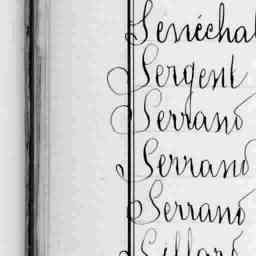 Sénéchal
Sergent
Serrano
Serrano
Serrano